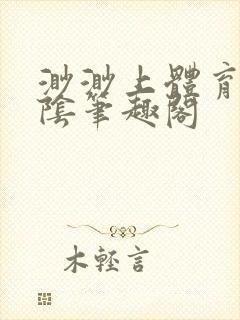 渺渺上體育
陰筆趣閣
木輕言